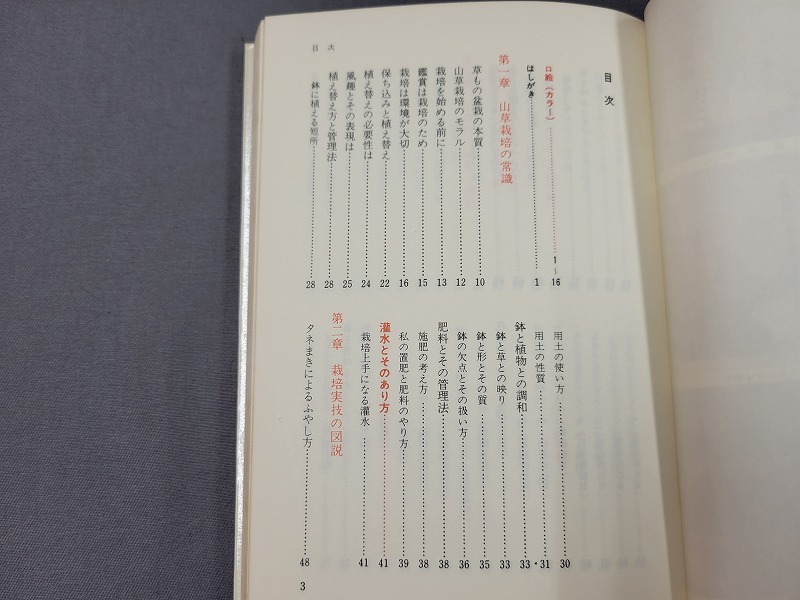 目次
目次
口絵(カラー)………1〜16
はしがき………1
第一章 山草栽培の常識
草もの盆栽の本質………10
山草栽培のモラル………12
栽培を始める前に………13
鑑賞は栽培のため………15
栽培は環境が大切………16
保ち込みと植え替え………22
植え替えの必要性は………24
風趣とその表現は………25
植え替え方と管理法………28
鉢に植える短所………28
用土の使い方………30
用土の性質………31
鉢と植物との調和………33
鉢と草との映り………33
鉢と形とその質………35
鉢の欠点とその扱い方………36
肥料とその管理法………38
施肥の考え方………38
私の置肥と肥料のやり方………39
灌水とそのあり方………41
栽培上手になる灌水………41
第二章 栽培実技の図説
タネまきによるふやし方………48
3